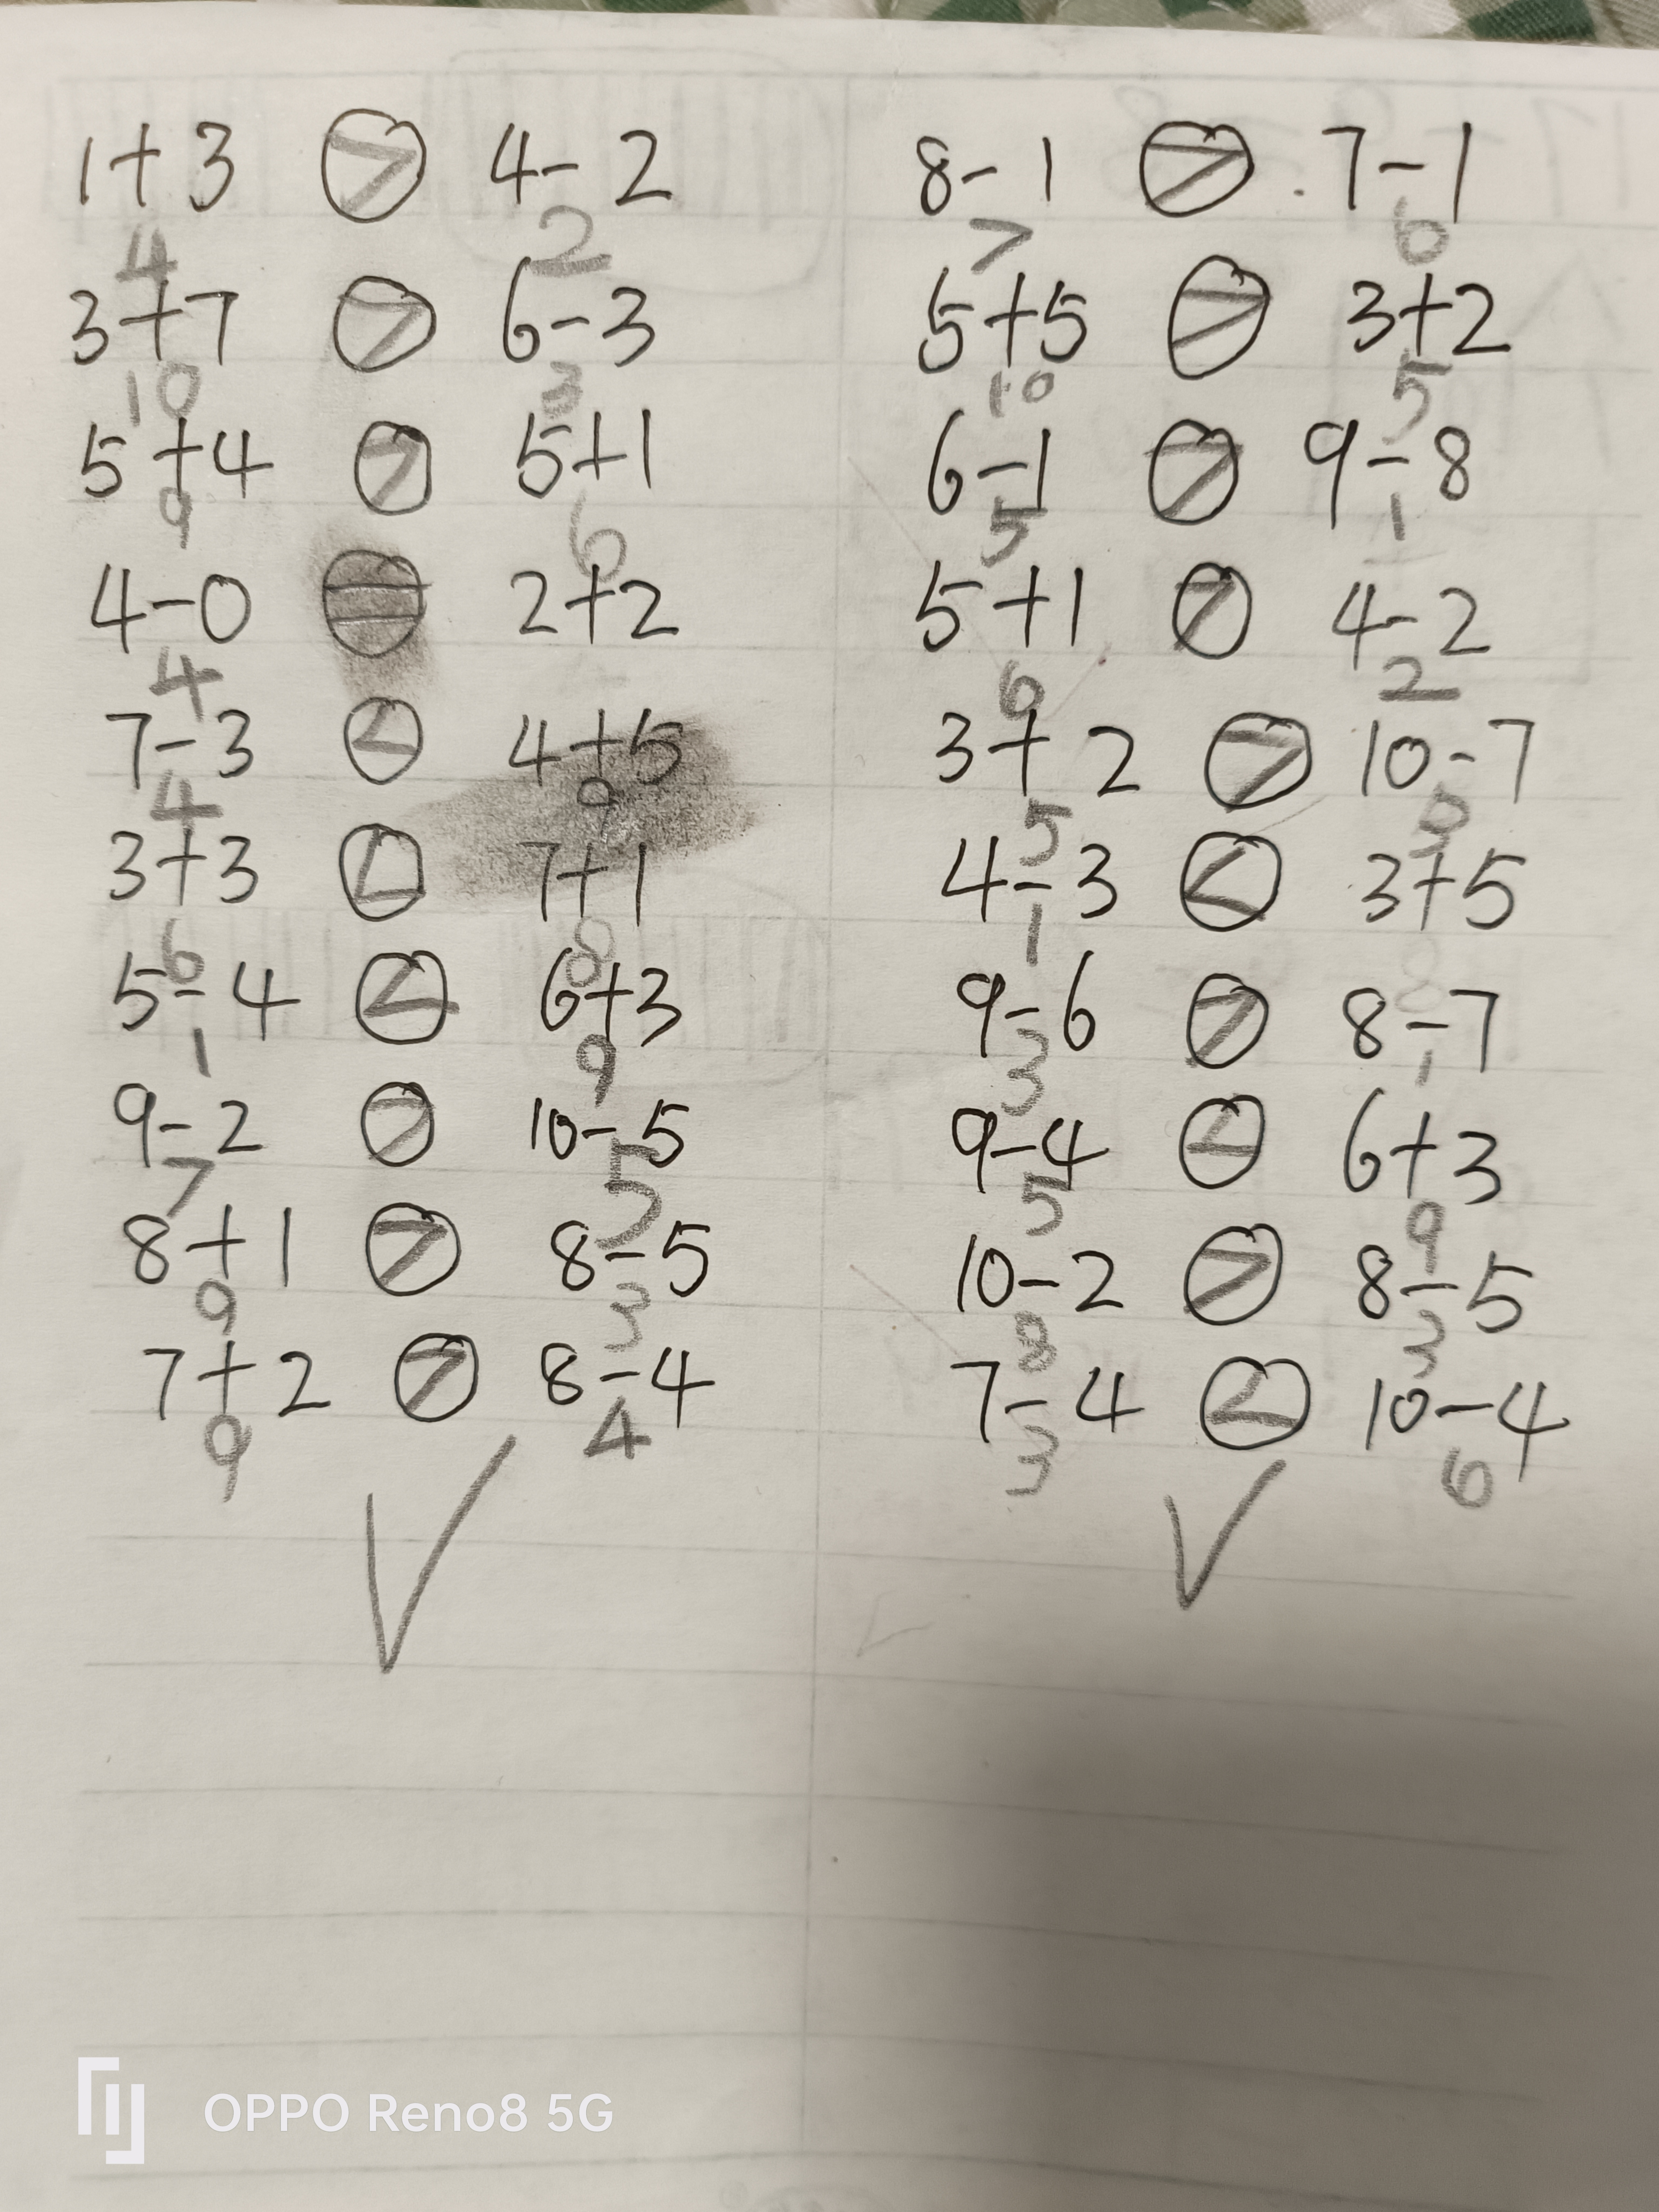 1+3 > 4-2
4 2
3+7 > 6-3
10 3
5+4 > 5+1
9 6
4-0 = 2+2
4
7-3 < 4+5
4 9
3+3 < 7+1
6 8
5-4 < 6+3
1 9
9-2 > 10-5
7 5
8+1 > 8-5
9 3
7+2 > 8-4
9 4
8-1 > 7-1
7 6
5+5 > 3+2
10 5
6-1 > 9-8
5 1
5+1 > 4-2
6 2
3+2 > 10-7
5
4-3 < 3+5
1 8
9-6 > 8-7
3 1
9-4 < 6+3
5 9
10-2 > 8-5
8 3
7-4 < 10-4
3 6
OPPO Reno8 5G